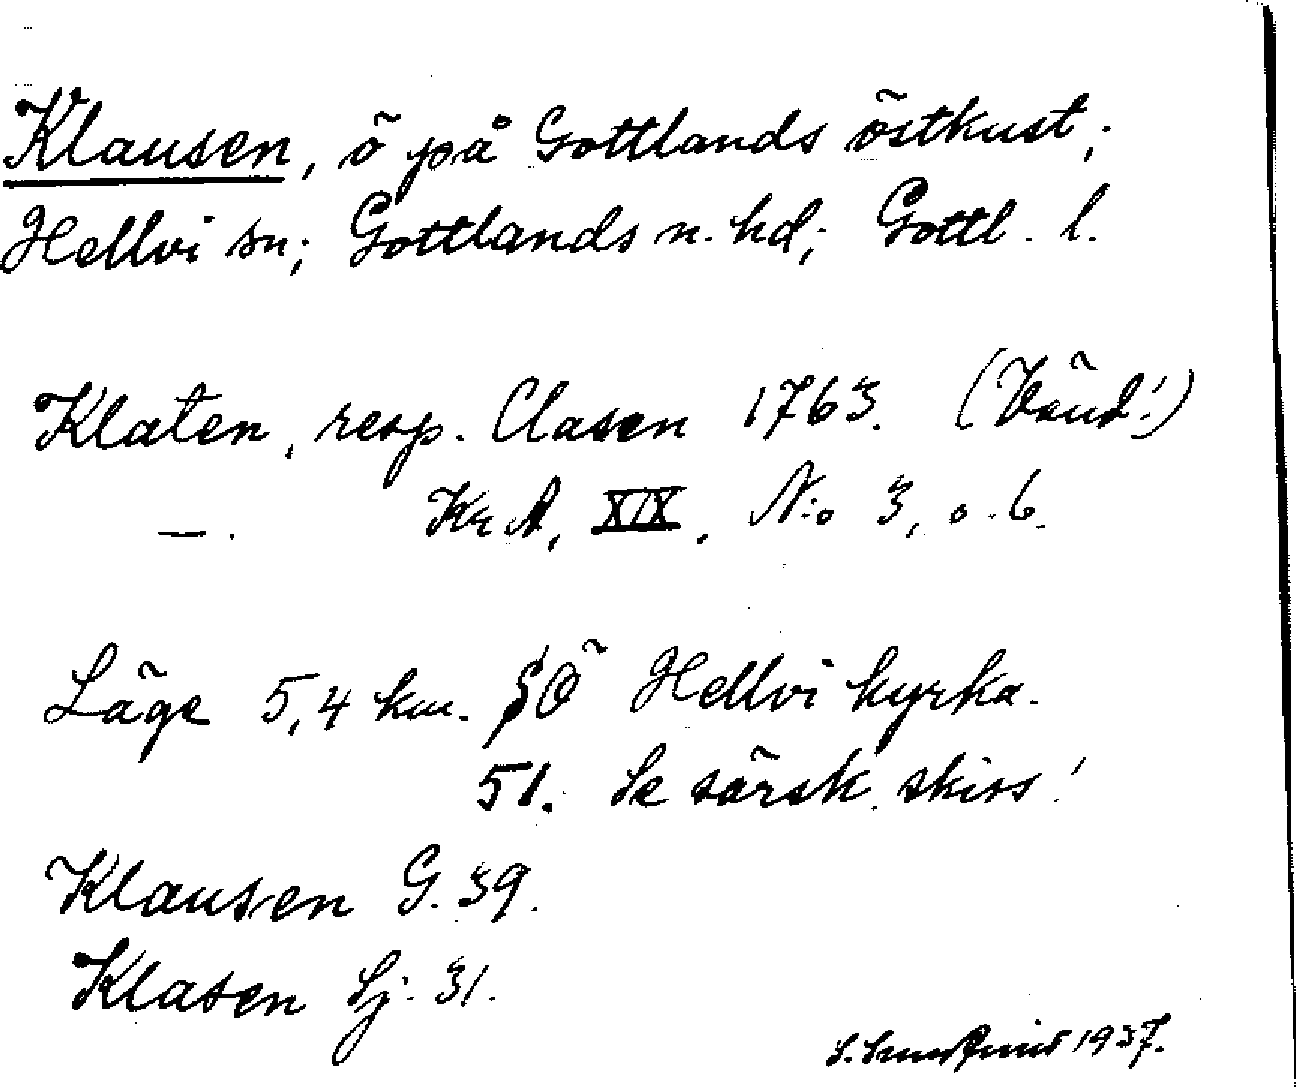 Klausen, ö på Gottlands östkust;
Hellvi sn; Gottlands n. hd; Gottl. l.
Klaten, resp. Clasen 1763. (Vänd!)
—. KrA, XIX, N:o 3, o. 6.
Läge 5,4 km. SÖ Hellvi kyrka.
51. Se särsk. skiss!
Klausen G. 39.
Klasen Sj. 31.
1937.